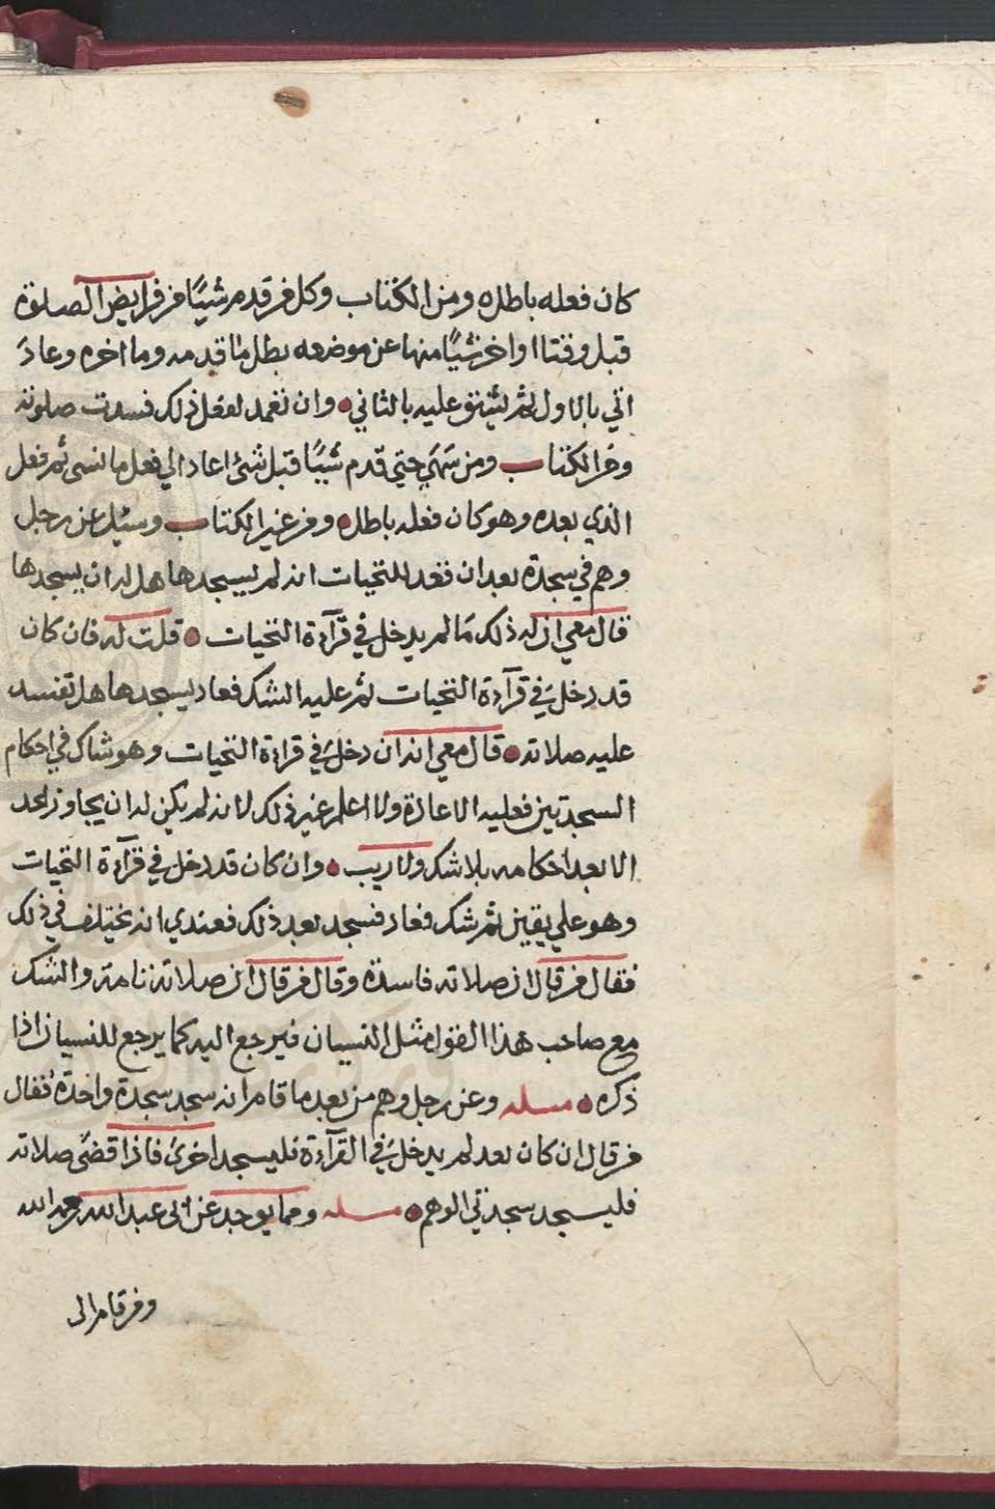 كان فعله باطله ومن الكتاب وكل من قدم شيًا من فرايض الصلوة
قبل وقتها او اخر شيًا منها عن موضعه بطل ما قدمه وما اخره وعاد
اتي بالاول ثم ليتنق عليه بالثاني وان تعمد لفعل ذلك فسدت صلوته
ومن الكتاب ومن سهى حتى قدم شيًا قبل شئ اعاد الي فعل ما نسى ثم فعل
الذي بعده وهو كان فعله باطله ومن غير الكتاب وسئل عن رجل
وهم في سجدة بعد ان قعد للتحيات انه لم يسجدها هل له ان يسجدها
قال معي ان له ذلك ما لم يدخل في قرآءة التحيات قلت له فان كان
قد دخل في قرآءة التحيات ثم عليه الشك فعاد ليسجدها هل تفسد
عليه صلاته قال معي انه ان دخل في قراءة التحيات وهو شاك في احكام
السجدتين فعليه الاعادة ولا اعلم غير ذلك لانه لم يكن له ان يجاوز لحد
الا بعد احكامه بلا شك ولا ريب وان كان قد دخل في قرآءة التحيات
وهو علي يقين ثم شك فعاد فسجد بعد ذلك فعندي انه يختلف في ذلك
فقال من قال ان صلاته فاسدة وقال من قال ان صلاته تامة والشك
مع صاحب هذا القول مثل النسيان فيرجع اليه كما يرجع للنسيان اذا
ذكره مسله وعن رجل وهم من بعد ما قام انه سجد سجدة واحدة فقال
من قال ان كان بعد لم يدخل في القرآءة فليسجد اخرى فاذا قضى صلاته
فليسجد سجدتي الوهم مسله ومما يوجد عن ابي عبد الله رحمه الله
ومن قام الى